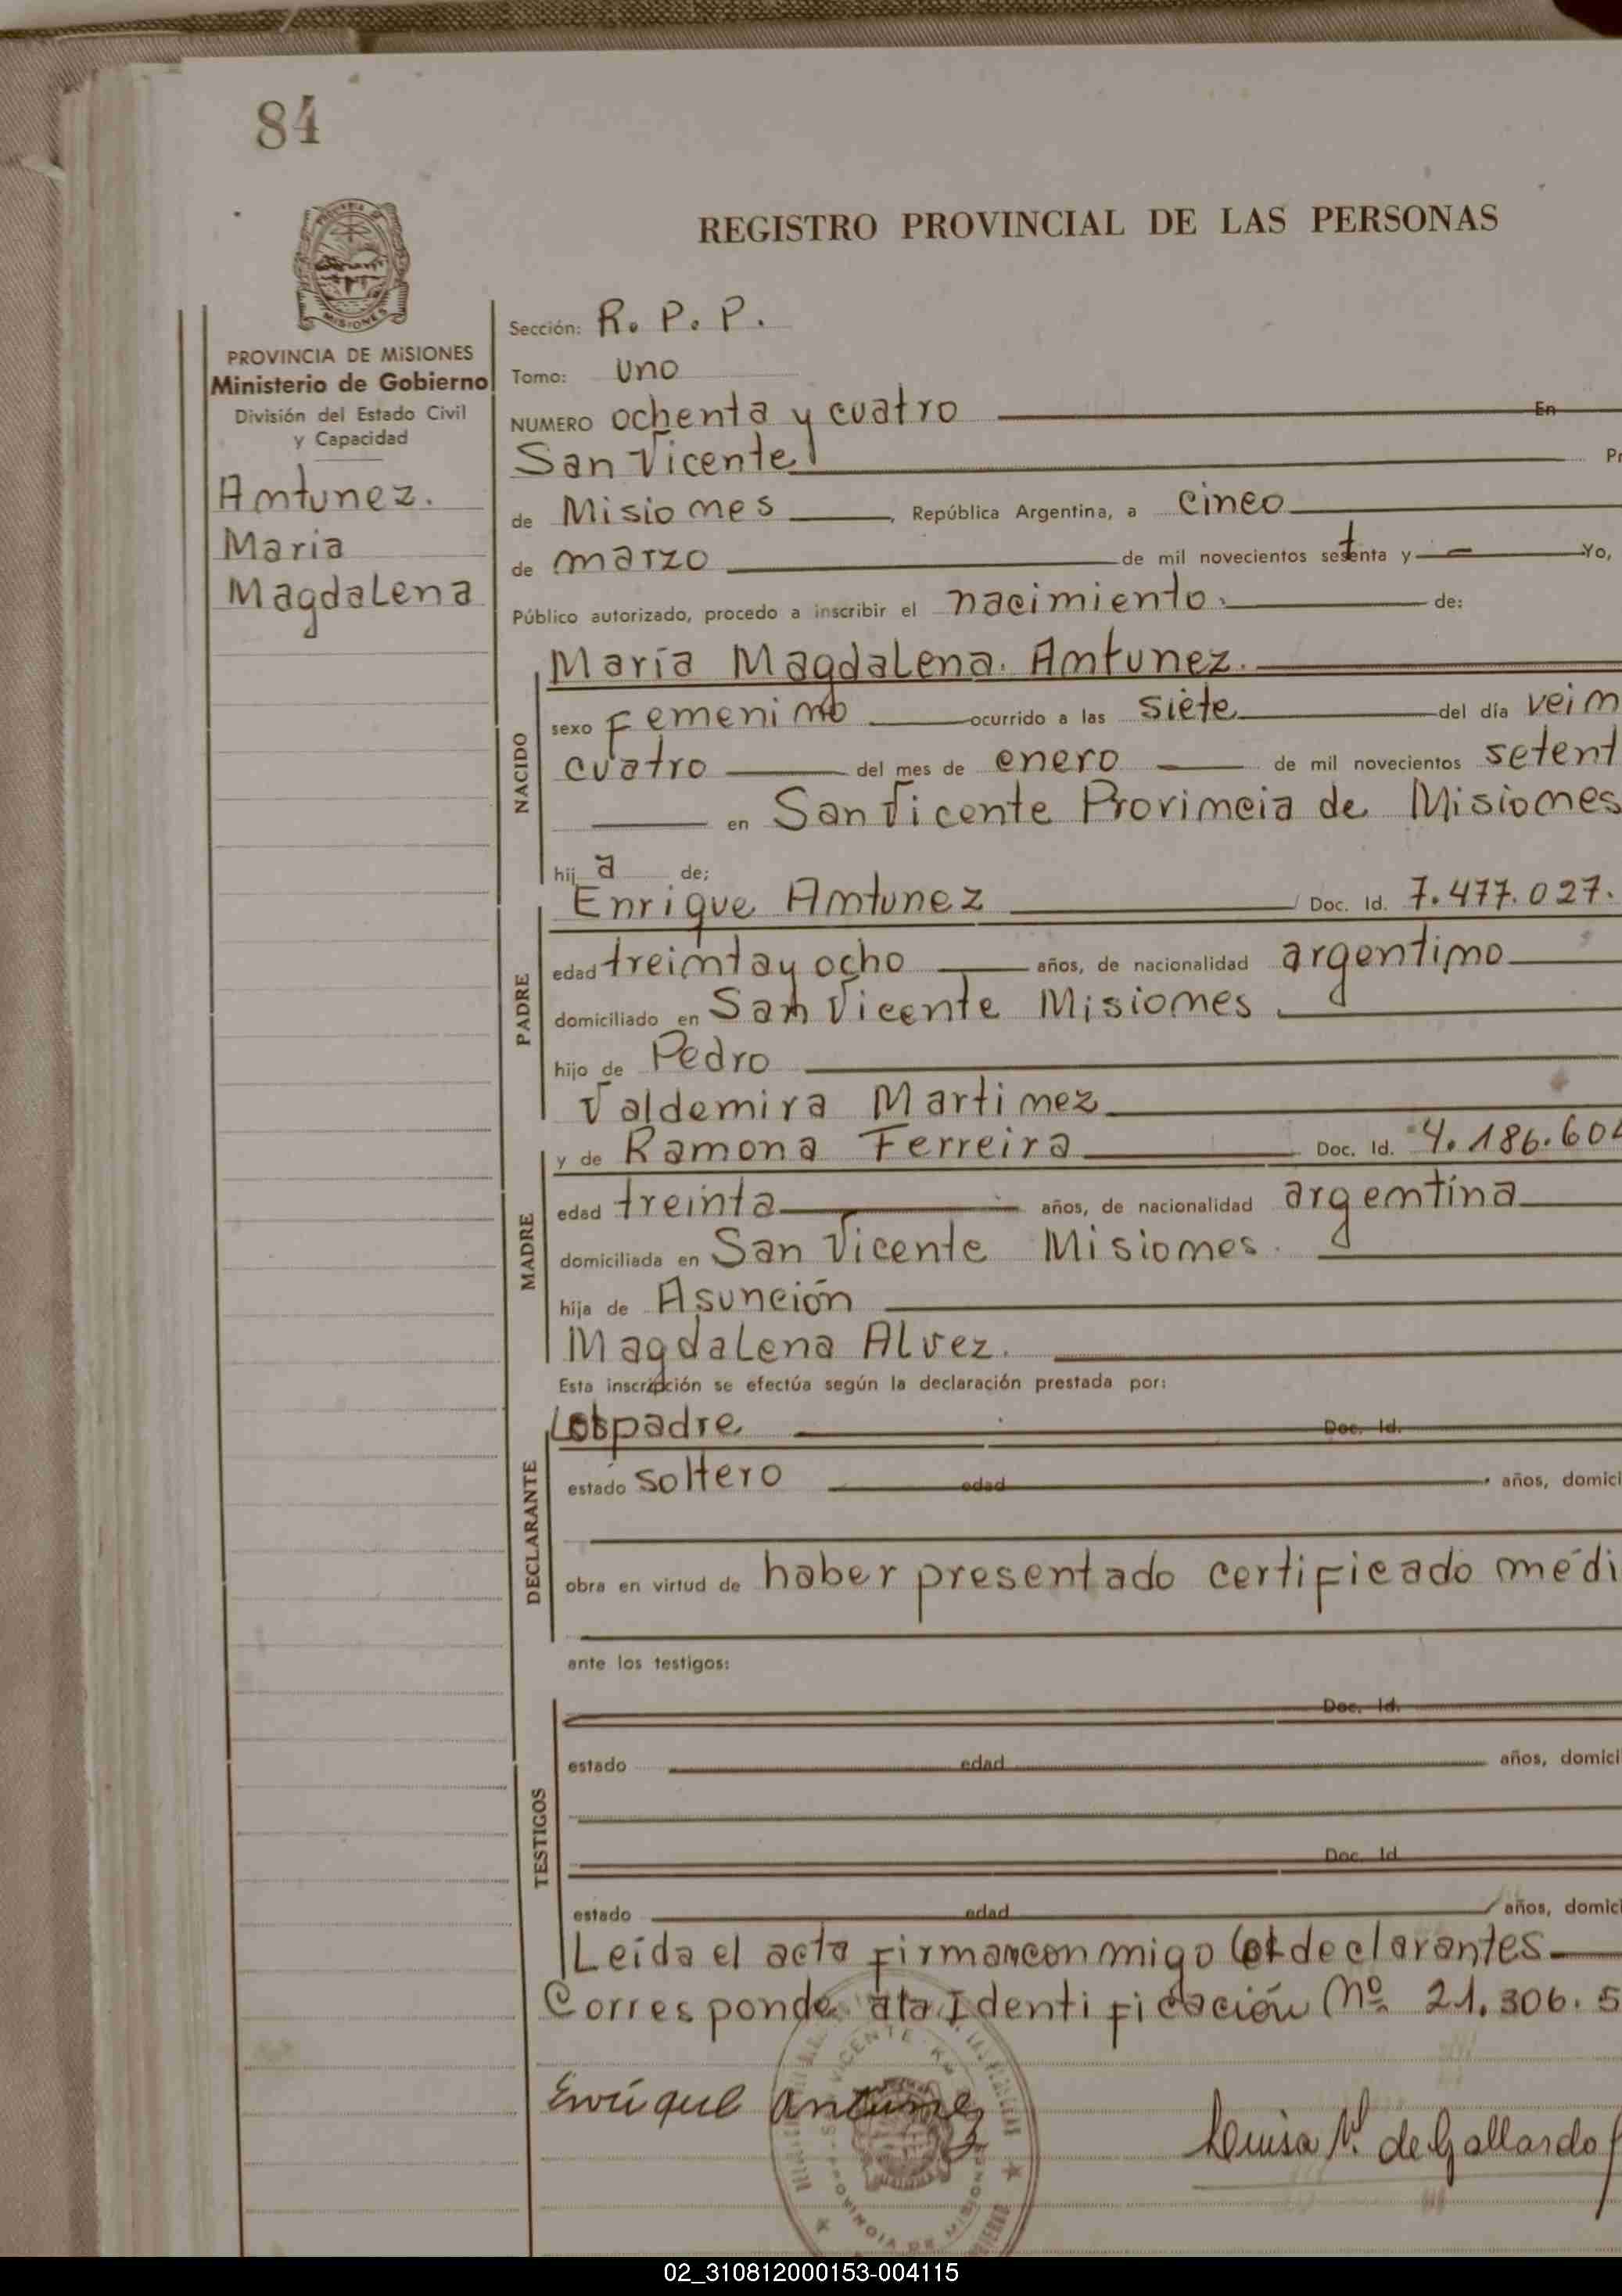 84
REGISTRO PROVINCIAL DE LAS PERSONAS
MISIONES
PROVINCIA DE MISIONES
Ministerio de Gobierno
División del Estado Civil
y Capacidad
Antunez.
Maria
Magdalena
Sección: R. P. P.
Tomo: uno
NUMERO ochenta y cuatro En
San Vicente Pr
de Misiones, República Argentina, a cinco
de marzo de mil novecientos setenta y — Yo,
Público autorizado, procedo a inscribir el nacimiento. de:
NACIDO
María Magdalena. Antunez.
sexo Femenino ocurrido a las siete del día vein
cuatro del mes de enero de mil novecientos setent
en San Vicente Provincia de Misiones
hij a de;
PADRE
Enrique Antunez Doc. Id. 7.477.027.
edad treinta y ocho años, de nacionalidad argentino
domiciliado en San Vicente Misiones
hijo de Pedro
Valdemira Martinez
MADRE
y de Ramona Ferreira Doc. Id. 4.186.604
edad treinta años, de nacionalidad argentina
domiciliada en San Vicente Misiones.
hija de Asunción
Magdalena Alvez.
Esta inscripción se efectúa según la declaración prestada por:
DECLARANTE
padre Doc. Id.
estado soltero edad años, domici
obra en virtud de haber presentado certificado médi
ante los testigos:
TESTIGOS
Doc. Id.
estado edad años, domici
Doc. Id.
estado edad años, domici
Leída el acta firman conmigo declarantes
Corresponde a la Identificación Nº 21.306.5
Enrique Antunez
Luisa de Gallardo
02_310812000153-004115